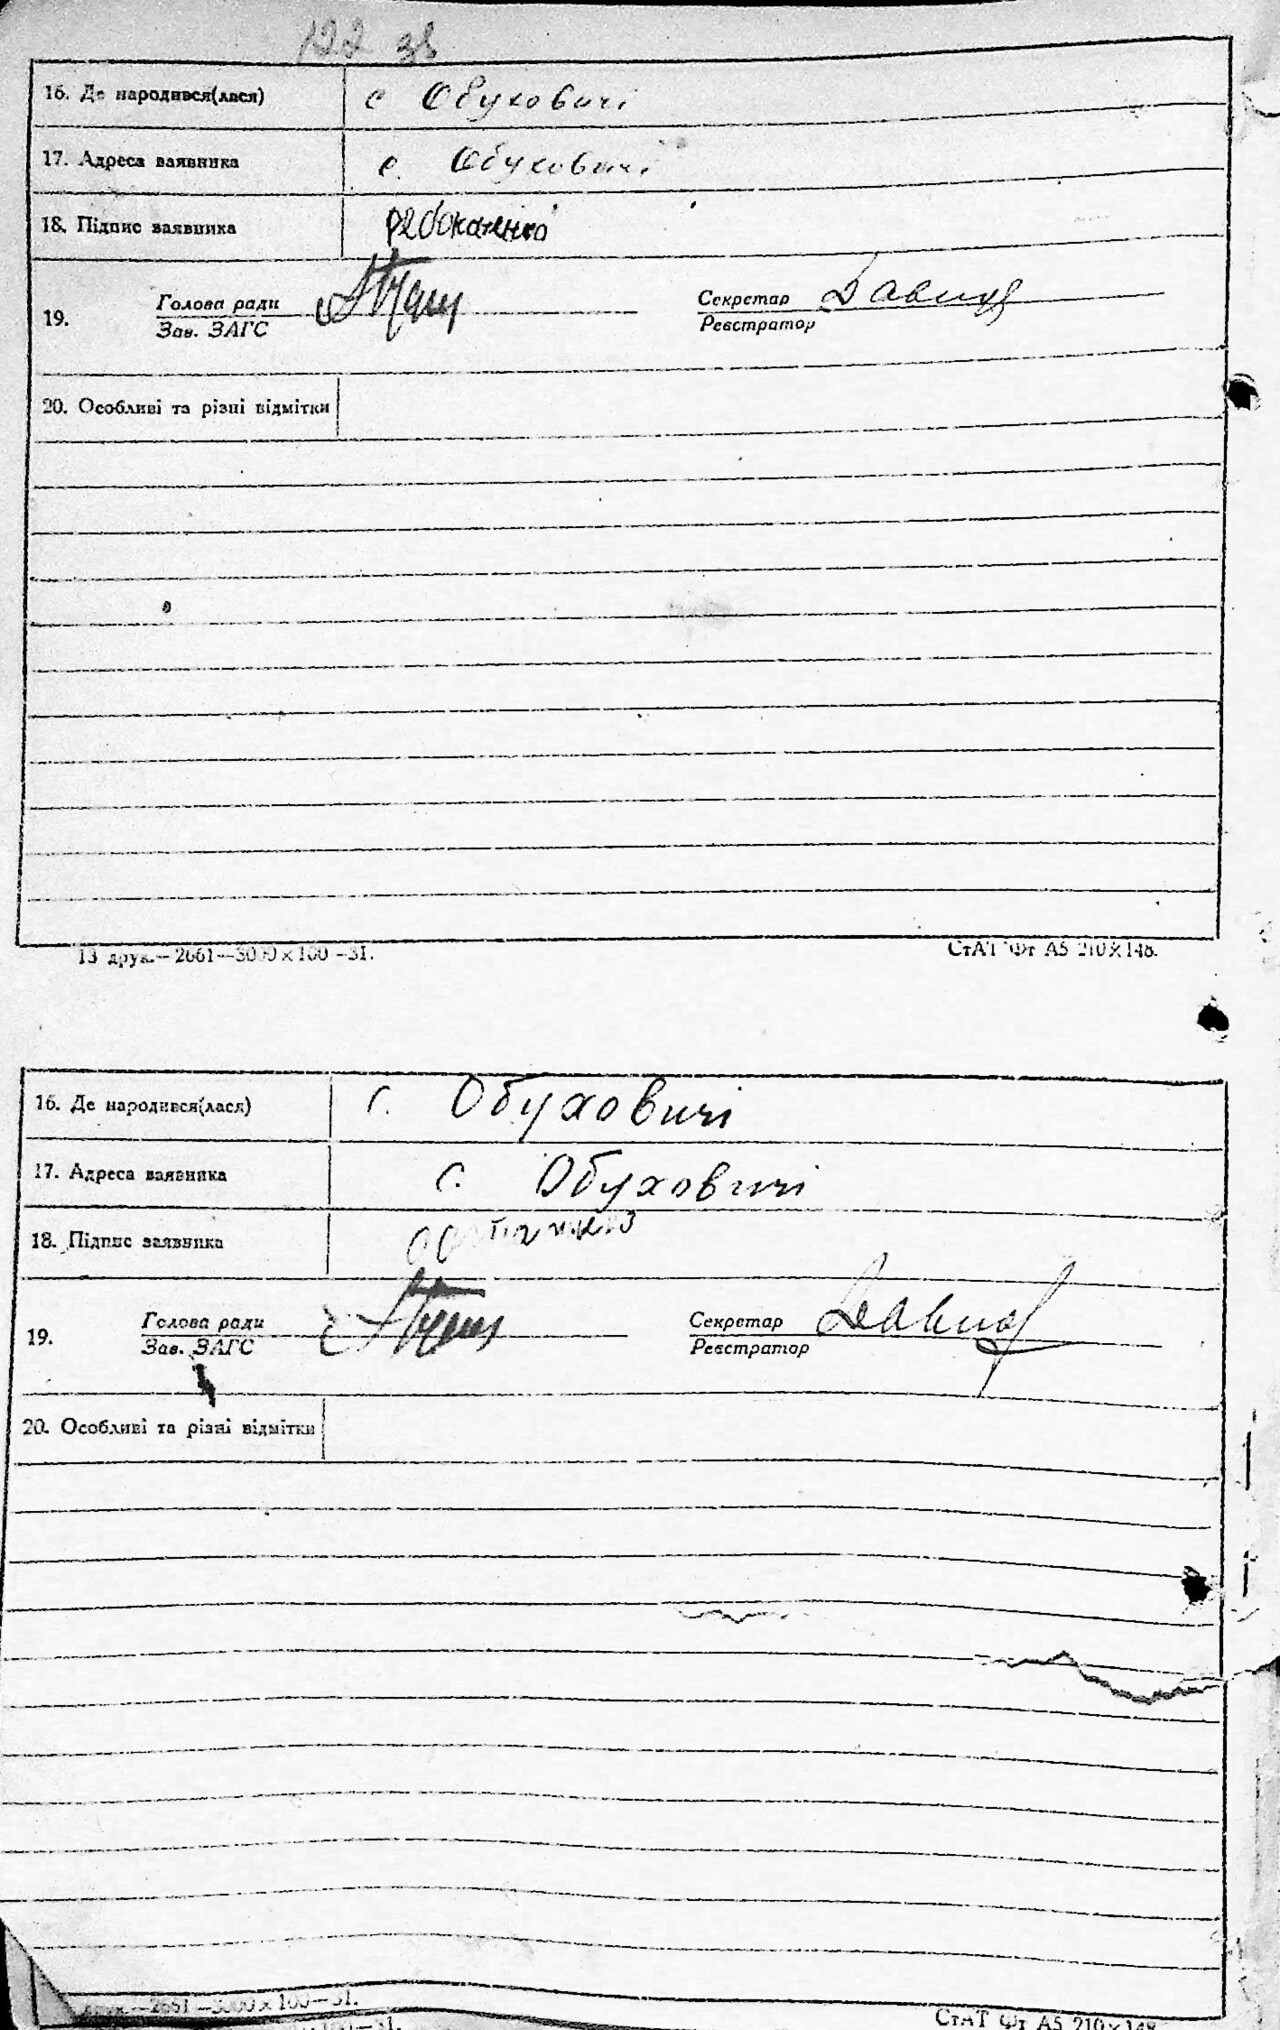 122 зв
16. Де народився(лася) с Обуховичі
17. Адреса заявника с. Обуховичі
18. Підпис заявника
19. Голова ради Секретар Давид
Зав. ЗАГС Реєстратор
20. Особливі та різні відмітки
13 друк.—2661—3000×100—31. СтАТ Фт А5 210×148.
16. Де народився(лася) с. Обуховичі
17. Адреса заявника с. Обуховичі
18. Підпис заявника
19. Голова ради Секретар Давид
Зав. ЗАГС Реєстратор
20. Особливі та різні відмітки
друк.—2661—3000×100—31.
СтАТ Фт А5 210×148